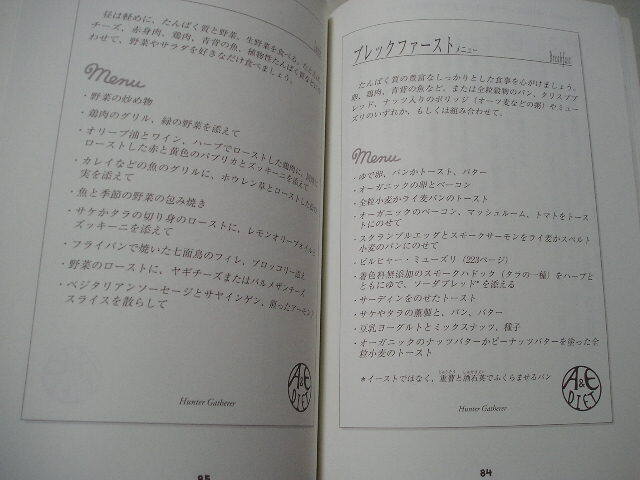 昼は軽めに、たんぱく質と野菜、生野菜を食べる。たとえば
チーズ、赤身肉、鶏肉、青背の魚、植物性たんぱく質などに
わせて、野菜やサラダを好きなだけ食べましょう。
Menu
・野菜の炒め物
・鶏肉のグリル、緑の野菜を添えて
・オリーブ油とワイン、ハーブでローストした鶏肉に、同様に
ローストした赤と黄色のパプリカとズッキーニを添えて
・カレイなどの魚のグリルに、ホウレン草とローストした
実を添えて
・魚と季節の野菜の包み焼き
・サケかタラの切り身のローストに、レモンオリーブオイルと
ズッキーニを添えて
・フライパンで焼いた七面鳥のフィレ、ブロッコリー添え
・野菜のローストに、ヤギチーズまたはパルメザンチーズ
・ベジタリアンソーセージとサヤインゲン、煎ったアーモンド
スライスを散らして
A&E DIET
Hunter Gatherer
85
ブレックファーストメニュー
Breakfast
たんぱく質の豊富なしっかりとした食事を心がけましょう。
卵、鶏肉、青背の魚など、または全粒穀物のパン、クリスプブ
レッド、ナッツ入りのポリッジ（オーツ麦などの粥）やミュー
ズリのいずれか、もしくは組み合わせて。
Menu
・ゆで卵、パンかトースト、バター
・オーガニックの卵とベーコン
・全粒小麦かライ麦パンのトースト
・オーガニックのベーコン、マッシュルーム、トマトをトースト
にのせて
・スクランブルエッグとスモークサーモンをライ麦かスペルト
小麦のパンにのせて
・ビルヒャー・ミューズリ（223ページ）
・着色料無添加のスモークハドック（タラの一種）をハーブと
ともにゆで、ソーダブレッド*を添える
・サーディンをのせたトースト
・サケやタラの薫製と、パン、バター
・豆乳ヨーグルトとミックスナッツ、種子
・オーガニックのナッツバターかピーナッツバターを塗った全
粒小麦のトースト
＊イーストではなく、重曹と酒石英でふくらませるパン
A&E DIET
Hunter Gatherer
84